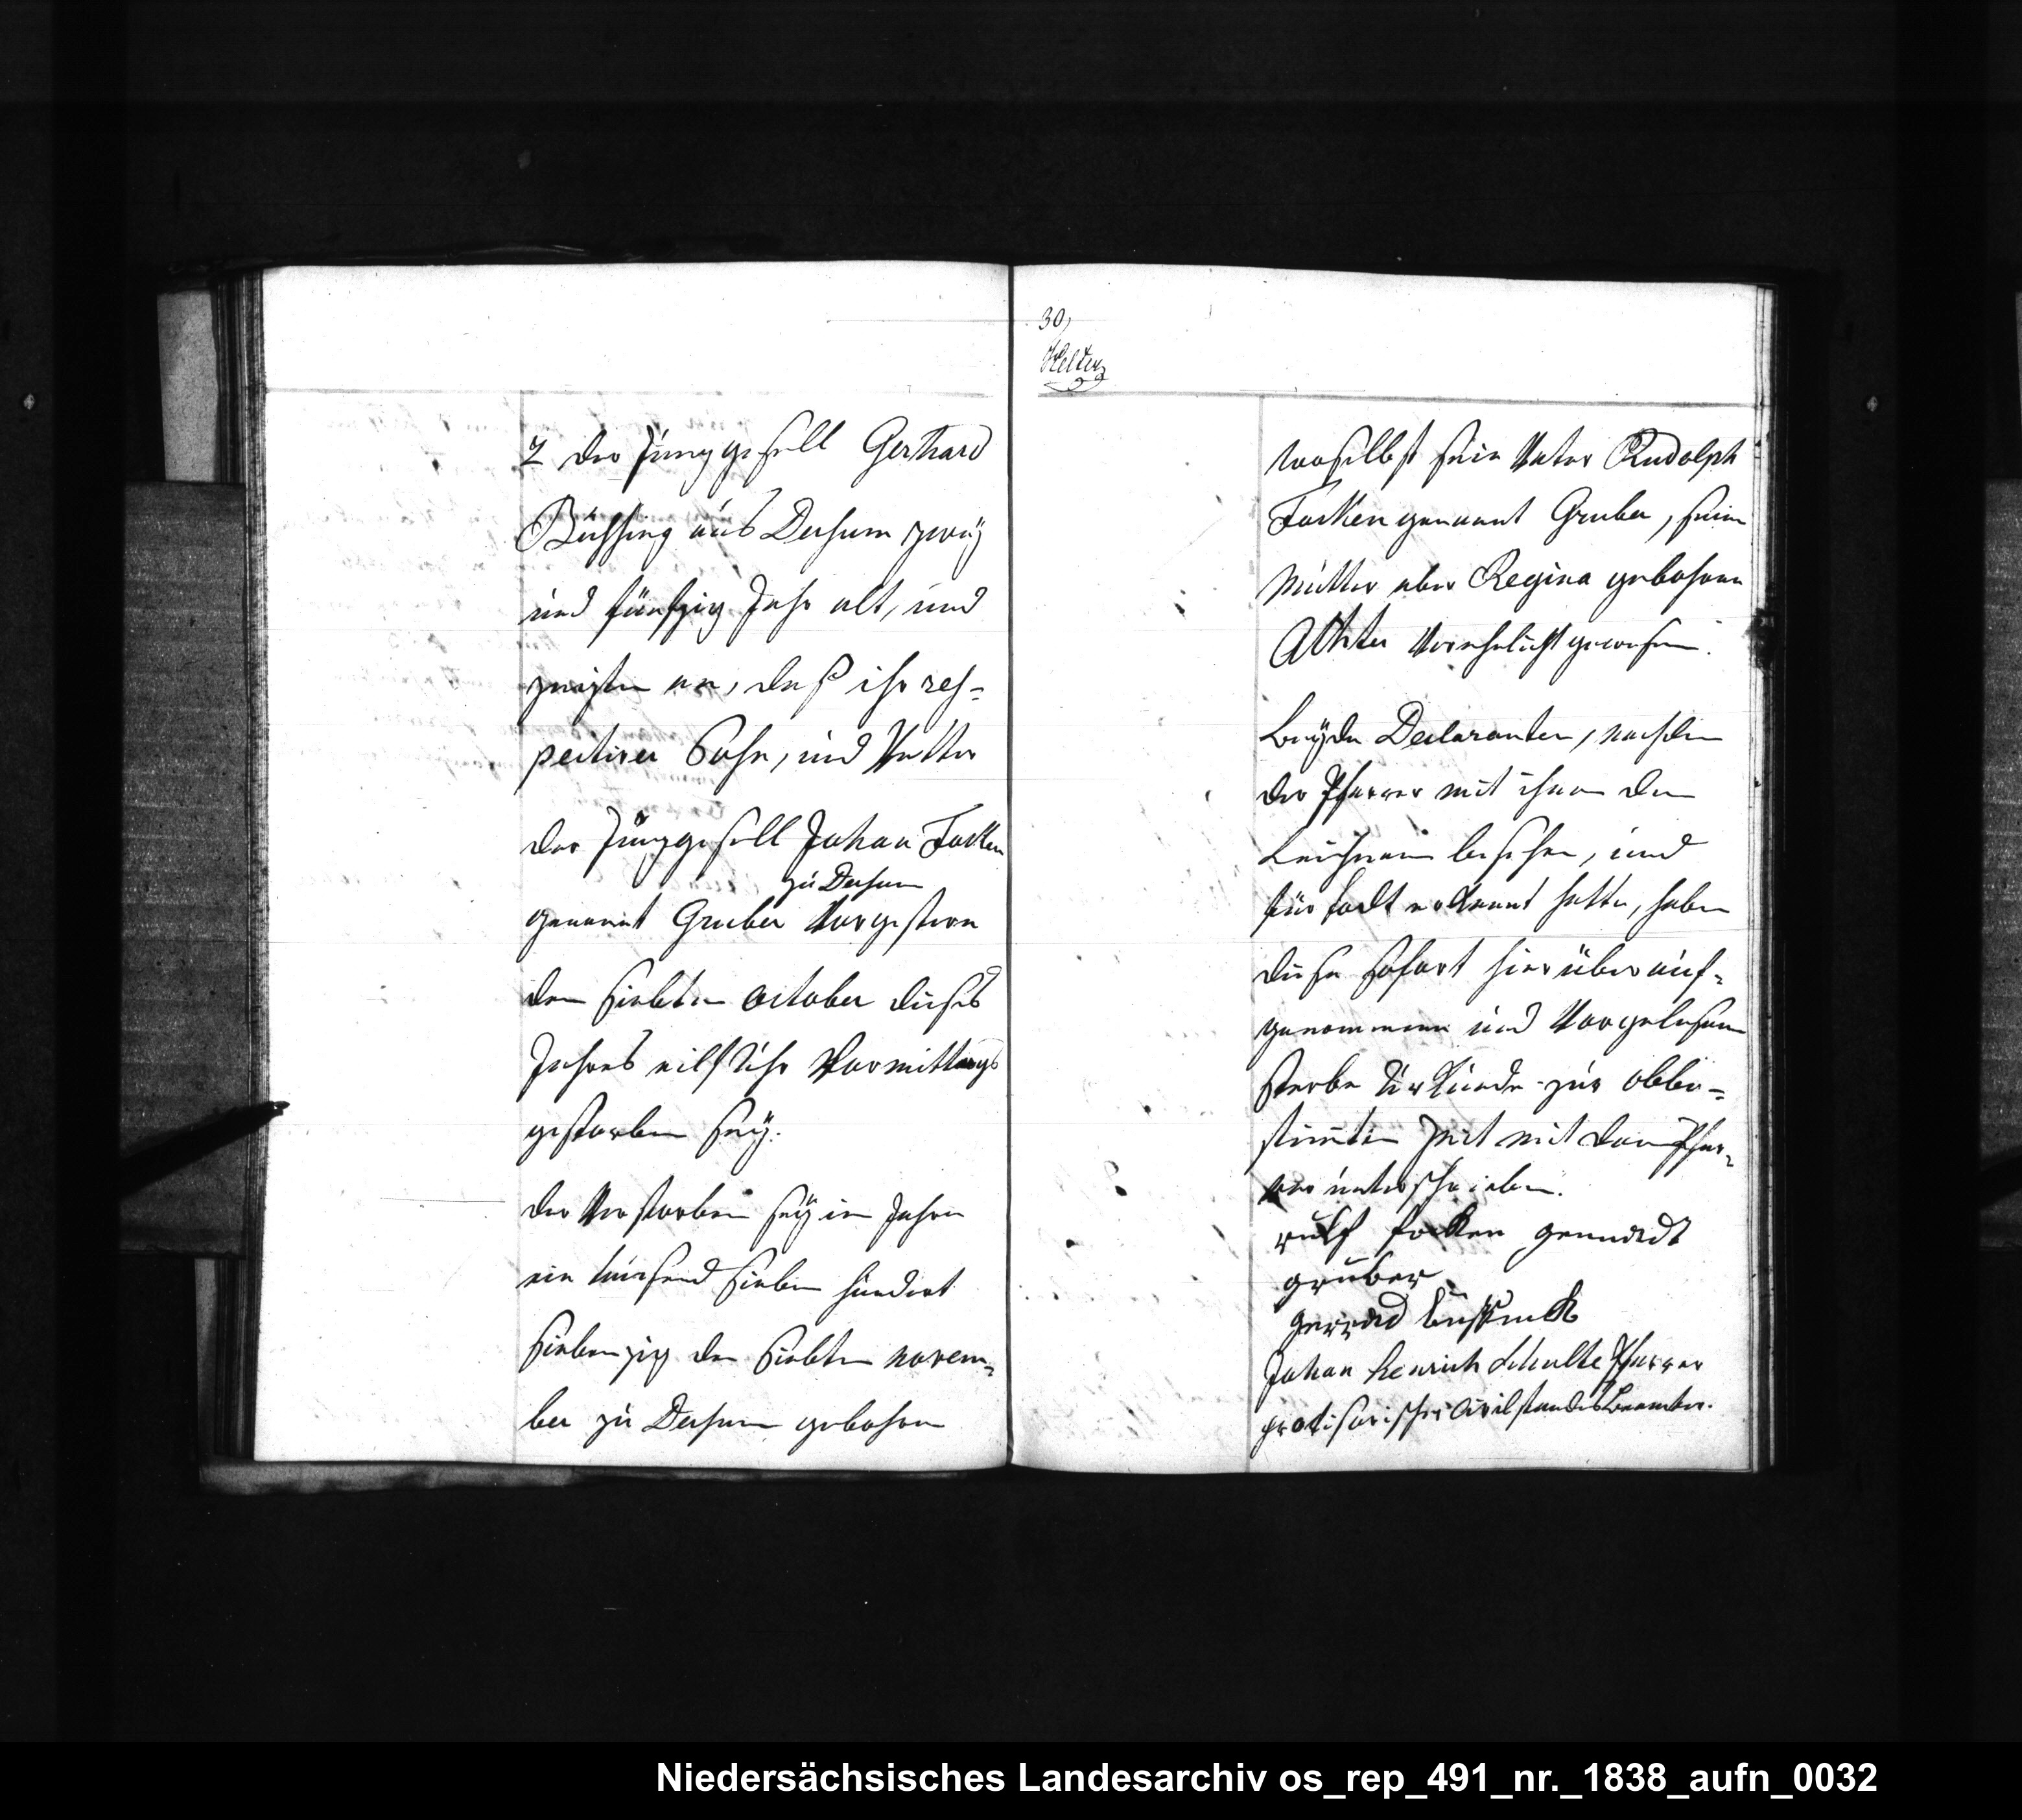 2 der Junggesell Gerhard
Büssing aus Dersum zweÿ
und fünfzig Jahr alt, und
zeigten an, daß ihr res-
pectiver Sohn, und Vetter
der Junggesell Johan Focken
zu Dersum
genannt Gruber Vorgestern
den siebten october dieses
Jahres eilf Uhr Vormittags
gestorben seÿ.
der Verstorbene seÿ im Jahre
ein tausend sieben hundert
siebenzig den siebten novem-
ber zu Dersum gebohren
30,
woselbst sein Vater Rudolph
Focken genannt Gruber, seine
Mutter aber Regina gebohrne
verehelicht gewesen.
beÿde Declaranten, nachdem
der Pfarrer mit ihnen den
Leichnam besehen, und
für todt erkannt hatte, haben
diese sofort hierüber auf-
genommene und Vorgelesene
sterbe Urkunde zur obbe-
stimten Zeit mit dem Pfar-
rer unterschrieben.
rulf focken genandt
gruber
gerrad
Johan Henrich Schulte Pfarrer
provisorischer Civilstandes Beamter.
Niedersächsisches Landesarchiv os_rep_491_nr._1838_aufn_0032